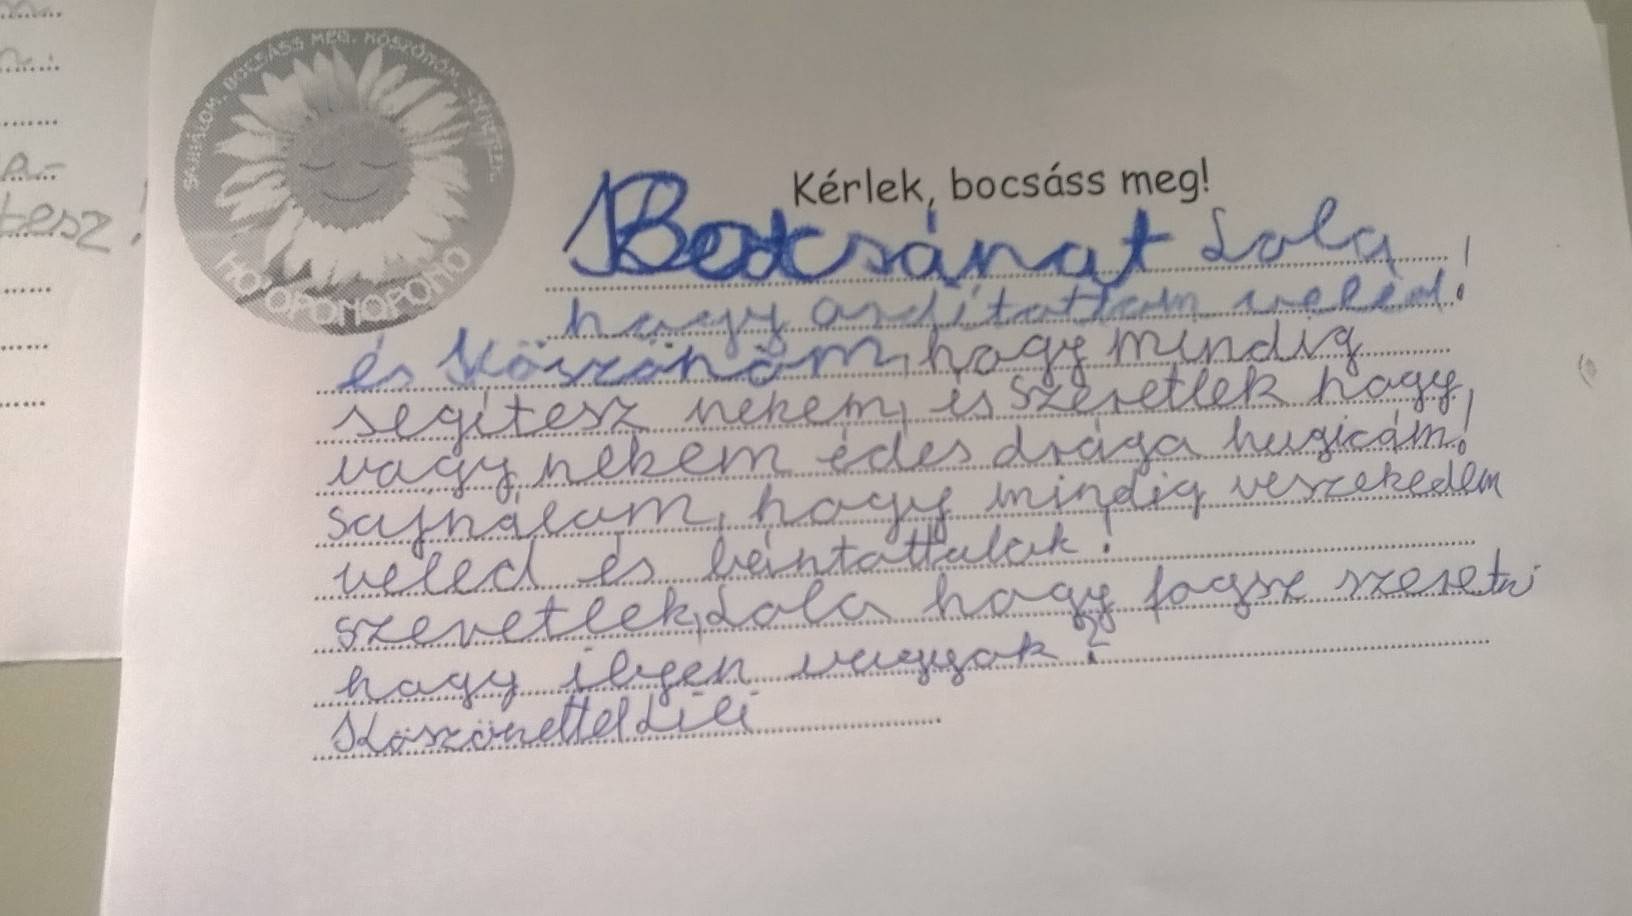 SAJNÁLOM, BOCSÁSS MEG, KÖSZÖNÖM, SZERETLEK
HO'OPONOPONO
Kérlek, bocsáss meg!
Bocsánat Lola
hogy ordítottam veled!
és Köszönöm, hogy mindig
segítesz nekem, és szeretlek hogy
vagy nekem édes drága hugicám!
sajnálom, hogy mindig veszekedem
veled és beintottalak!
szeretlek, Lola hogy fogsz szeretni
hogy ilyen vagyok?
Köszönettel Lili
tesz!